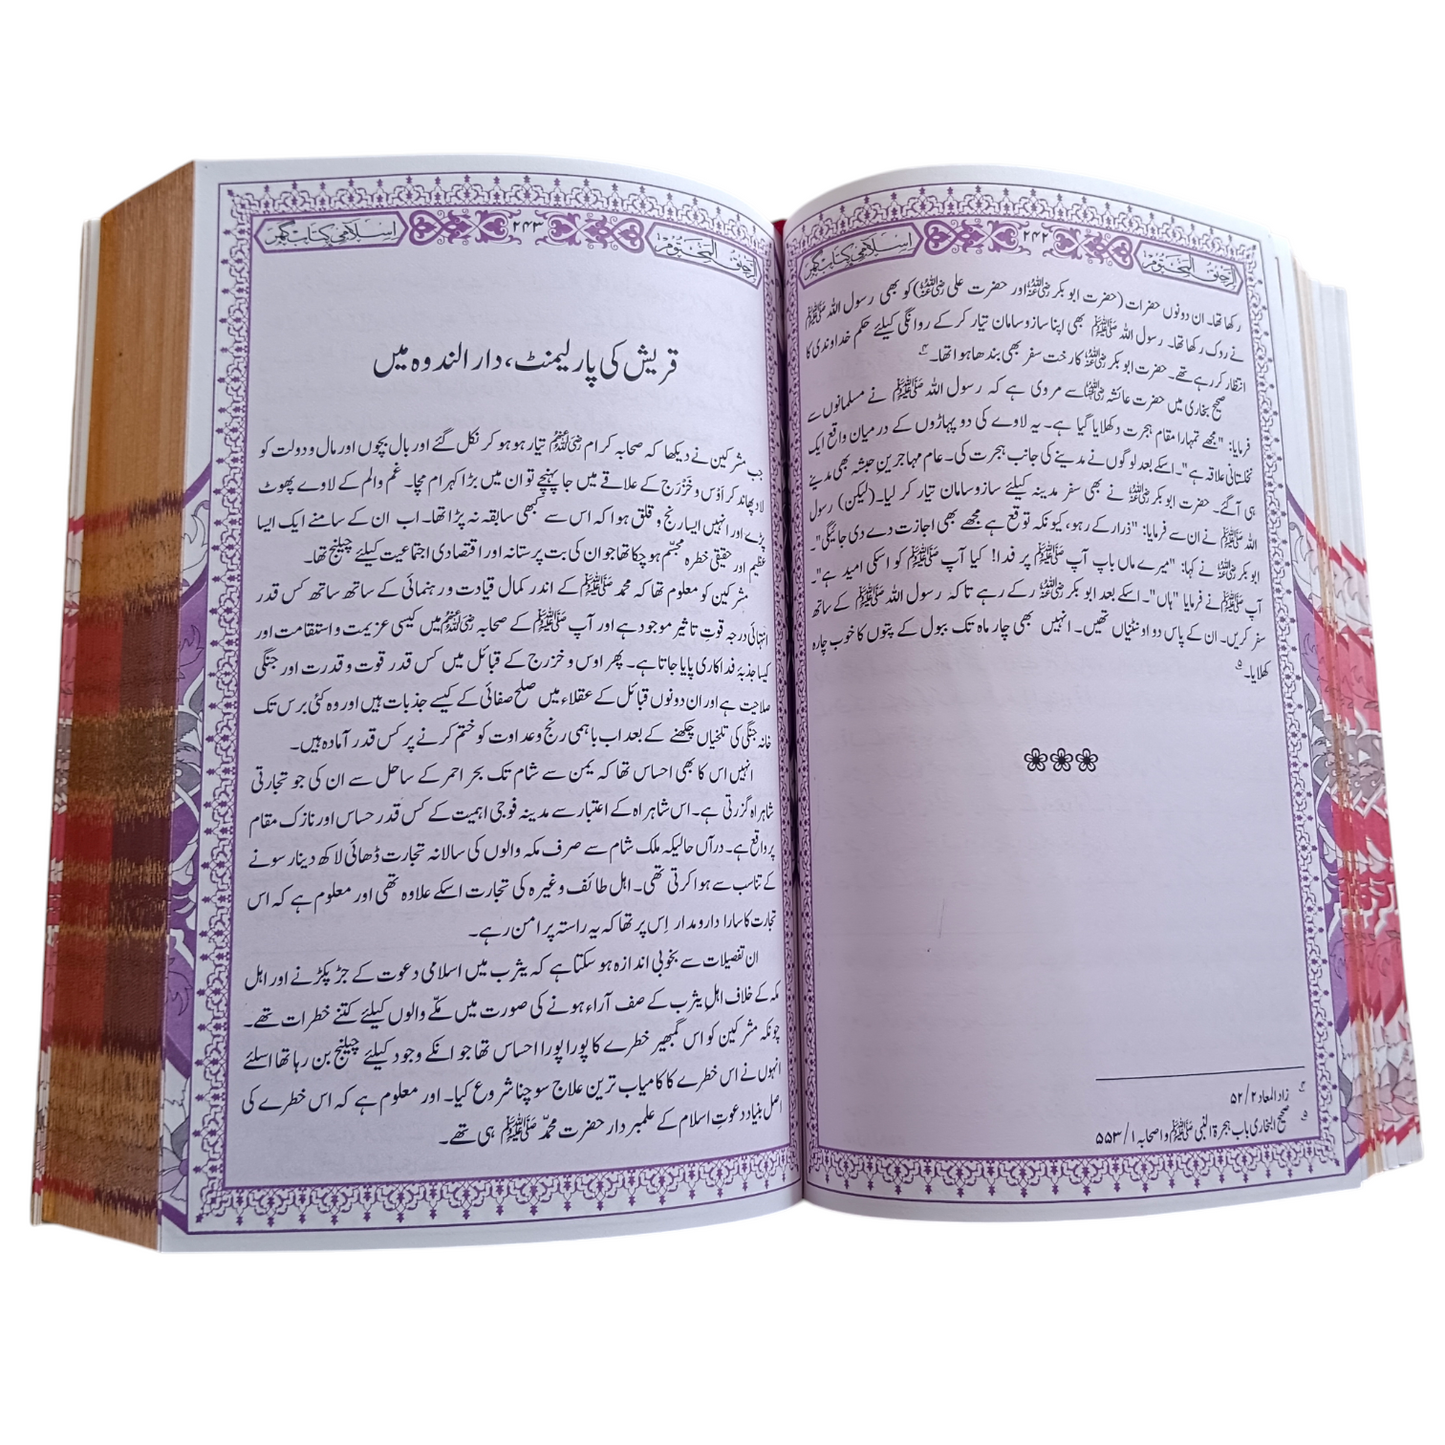 الرحیق المختوم ۲۴۲ اسلامی کتاب گھر
رکھا تھا۔ ان دونوں حضرات (حضرت ابوبکر رضی اللہ عنہ اور حضرت علی رضی اللہ عنہ) کو بھی رسول اللہ ﷺ
نے روک رکھا تھا۔ رسول اللہ ﷺ بھی اپنا سازوسامان تیار کرکے روانگی کیلئے حکم خداوندی کا
انتظار کر رہے تھے۔ حضرت ابوبکر رضی اللہ عنہ کا رخت سفر بھی بندھا ہوا تھا۔ ۴
صحیح بخاری میں حضرت عائشہ رضی اللہ عنہا سے مروی ہے کہ رسول اللہ ﷺ نے مسلمانوں سے
فرمایا: "مجھے تمہارا مقام ہجرت دکھلایا گیا ہے۔ یہ لاوے کی دو پہاڑوں کے درمیان واقع ایک
نخلستانی علاقہ ہے"۔ اسکے بعد لوگوں نے مدینے کی جانب ہجرت کی۔ عام مہاجرین حبشہ بھی مدینے
ہی آگئے۔ حضرت ابوبکر رضی اللہ عنہ نے بھی سفر مدینہ کیلئے سازوسامان تیار کر لیا۔ (لیکن) رسول
اللہ ﷺ نے ان سے فرمایا: "ذرا رکے رہو، کیونکہ توقع ہے مجھے بھی اجازت دے دی جائیگی"۔
ابوبکر رضی اللہ عنہ نے کہا: "میرے ماں باپ آپ ﷺ پر فدا! کیا آپ ﷺ کو اسکی امید ہے"۔
آپ ﷺ نے فرمایا "ہاں"۔ اسکے بعد ابوبکر رضی اللہ عنہ رکے رہے تاکہ رسول اللہ ﷺ کے ساتھ
سفر کریں۔ ان کے پاس دو اونٹنیاں تھیں۔ انہیں بھی چار ماہ تک ببول کے پتوں کا خوب چارہ
کھلایا۔ ۵
۴ زاد المعاد ۲/ ۵۲
۵ صحیح البخاری باب ہجرۃ النبی ﷺ و اصحابہ ۱/ ۵۵۳
الرحیق المختوم ۲۴۳ اسلامی کتاب گھر
قریش کی پارلیمنٹ، دار الندوہ میں
جب مشرکین نے دیکھا کہ صحابہ کرام رضی اللہ عنہم تیار ہو ہو کر نکل گئے اور بال بچوں اور مال و دولت کو
لاد پھاند کر اَوْس و خَزْرَج کے علاقے میں جا پہنچے تو ان میں بڑا کہرام مچا۔ غم والم کے لاوے پھوٹ
پڑے اور انہیں ایسا رنج و قلق ہوا کہ اس سے کبھی سابقہ نہ پڑا تھا۔ اب ان کے سامنے ایک ایسا
عظیم اور حقیقی خطرہ مجسّم ہو چکا تھا جو ان کی بت پرستانہ اور اقتصادی اجتماعیت کیلئے چیلنج تھا۔
مشرکین کو معلوم تھا کہ محمد ﷺ کے اندر کمال قیادت و رہنمائی کے ساتھ ساتھ کس قدر
انتہائی درجہ قوتِ تاثیر موجود ہے اور آپ ﷺ کے صحابہ رضی اللہ عنہم میں کیسی عزیمت و استقامت اور
کیسا جذبۂ فداکاری پایا جاتا ہے۔ پھر اوس و خزرج کے قبائل میں کس قدر قوت و قدرت اور جنگی
صلاحیت ہے اور ان دونوں قبائل کے عقلاء میں صلح صفائی کے کیسے جذبات ہیں اور وہ کئی برس تک
خانہ جنگی کی تلخیاں چکھنے کے بعد اب باہمی رنج و عداوت کو ختم کرنے پر کس قدر آمادہ ہیں۔
انہیں اس کا بھی احساس تھا کہ یمن سے شام تک بحر احمر کے ساحل سے ان کی جو تجارتی
شاہراہ گزرتی ہے۔ اس شاہراہ کے اعتبار سے مدینہ فوجی اہمیت کے کس قدر حساس اور نازک مقام
پر واقع ہے۔ درآں حالیکہ ملک شام سے صرف مکہ والوں کی سالانہ تجارت ڈھائی لاکھ دینار سونے
کے تناسب سے ہوا کرتی تھی۔ اہل طائف وغیرہ کی تجارت اسکے علاوہ تھی اور معلوم ہے کہ اس
تجارت کا سارا دارومدار اِس پر تھا کہ یہ راستہ پر امن رہے۔
ان تفصیلات سے بخوبی اندازہ ہو سکتا ہے کہ یثرب میں اسلامی دعوت کے جڑ پکڑنے اور اہل
مکہ کے خلاف اہلِ یثرب کے صف آراء ہونے کی صورت میں مکّے والوں کیلئے کتنے خطرات تھے۔
چونکہ مشرکین کو اس گمبھیر خطرے کا پورا پورا احساس تھا جو انکے وجود کیلئے چیلنج بن رہا تھا اسلئے
انہوں نے اس خطرے کا کامیاب ترین علاج سوچنا شروع کیا۔ اور معلوم ہے کہ اس خطرے کی
اصل بنیاد دعوتِ اسلام کے علمبردار حضرت محمّد ﷺ ہی تھے۔